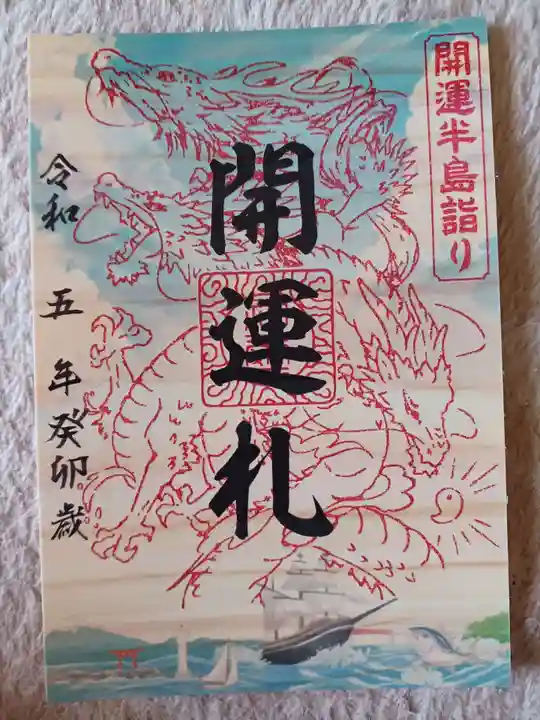 開運半島詣り
開運札
令和五年癸卯歳